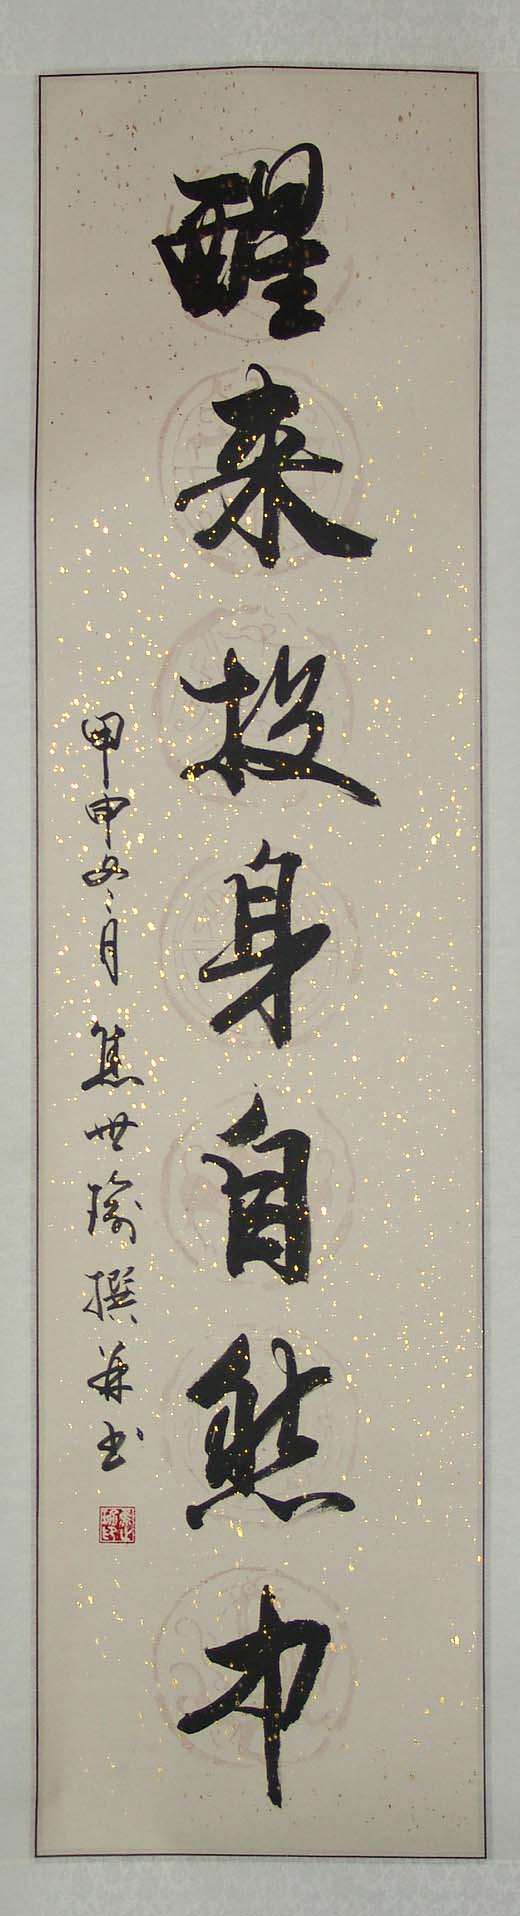 醒来投身自然中
甲申冬月 焦世瑜撰并书